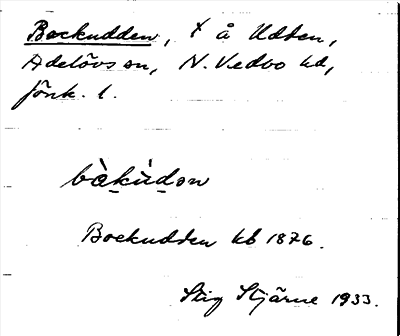 Bockudden, + å Udden,
Adelövs sn, N. Vedbo hd,
Jönk. l.
bàkùdən
Bockudden kb 1876.
Stig Stjärne 1933.